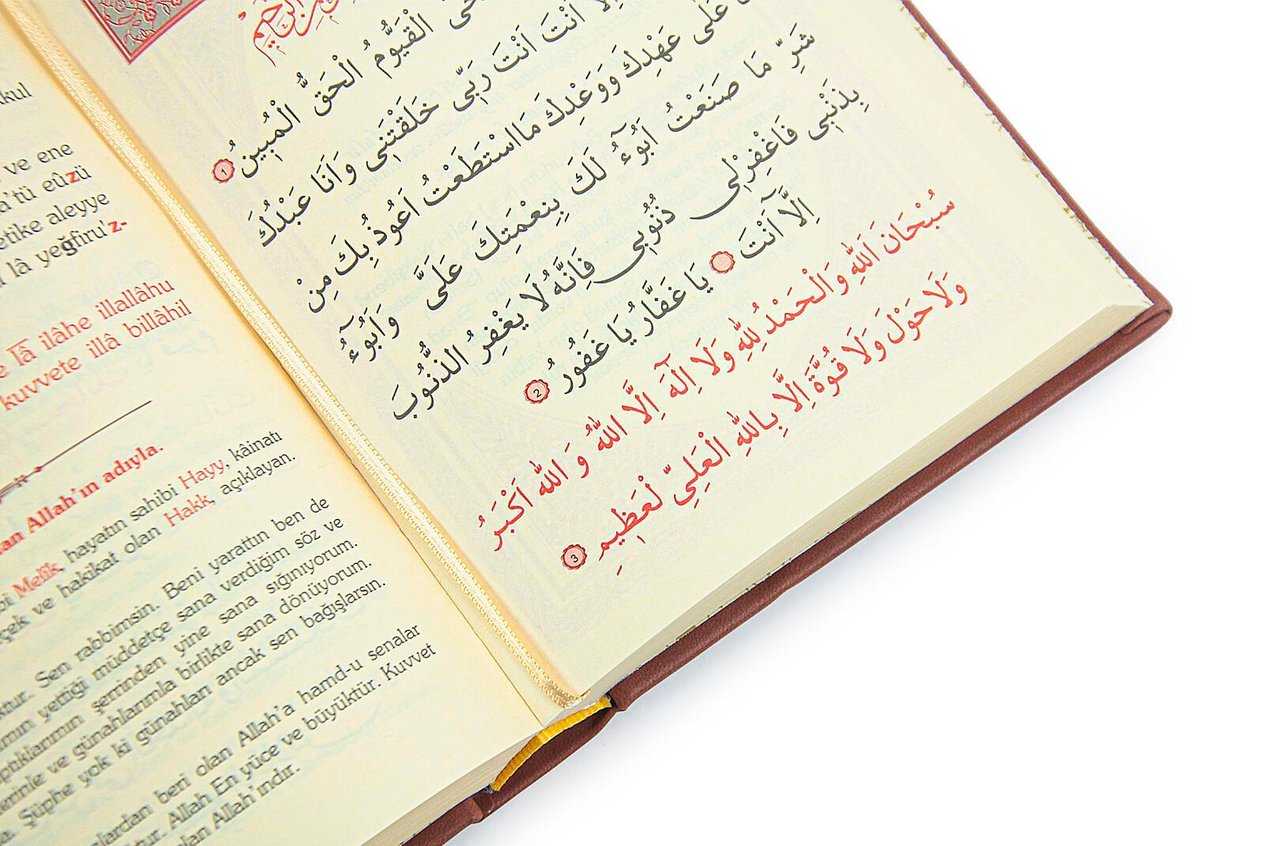 ve ene
eûzü
aleyye
lâ yeğfiru'z-
lâ ilâhe illallâhu
kuvvete illâ billâhil
Allah'ın adıyla.
Melîk, hayatın sahibi Hayy, kâinatı
ve hakikat olan Hakk, açıklayan.
Sen rabbimsin. Beni yarattın ben de
yettiği müddetçe sana verdiğim söz ve
şerrinden yine sana sığınıyorum.
ve günahlarımla birlikte sana dönüyorum.
Şüphe yok ki günahları ancak sen bağışlarsın.
beri olan Allah'a hamd-u senalar
Allah En yüce ve büyüktür. Kuvvet
Allah'ındır.
الْقَيُّومُ الْحَقُّ الْمُبِينُ 1
اَنْتَ اَنْتَ رَبِّى خَلَقْتَنِى وَاَنَا عَبْدُكَ
عَلَى عَهْدِكَ وَوَعْدِكَ مَااسْتَطَعْتُ اَعُوذُ بِكَ مِنْ
شَرِّ مَا صَنَعْتُ اَبُٓوءُ لَكَ بِنِعْمَتِكَ عَلَىَّ وَاَبُٓوءُ
بِذَنْبِى فَاغْفِرْلِى ذُنُوبِى فَاِنَّهُ لَا يَغْفِرُ الذُّنُوبَ
اِلَّا اَنْتَ يَا غَفَّارُ يَا غَفُورُ 2
سُبْحَانَ اللهِ وَالْحَمْدُ لِلهِ وَلَا اِلٰهَ اِلَّا اللهُ وَ اللهُ اَكْبَرُ
وَلَا حَوْلَ وَلَا قُوَّةَ اِلَّا بِاللهِ الْعَلِىِّ لْعَظِيمِ 3